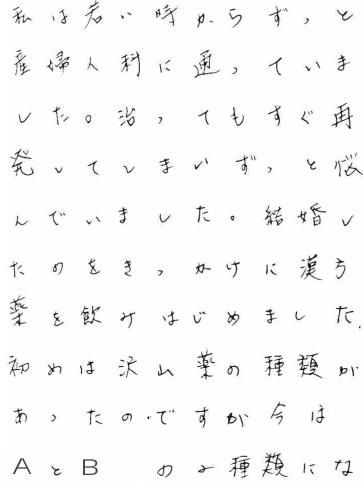 私は若い時からずっと
産婦人科に通っていま
した。治ってもすぐ再
発してしまいずっと悩
んでいました。結婚し
たのをきっかけに漢方
薬を飲みはじめました.
初めは沢山薬の種類が
あったの・ですが今は
AとB のみ種類にな